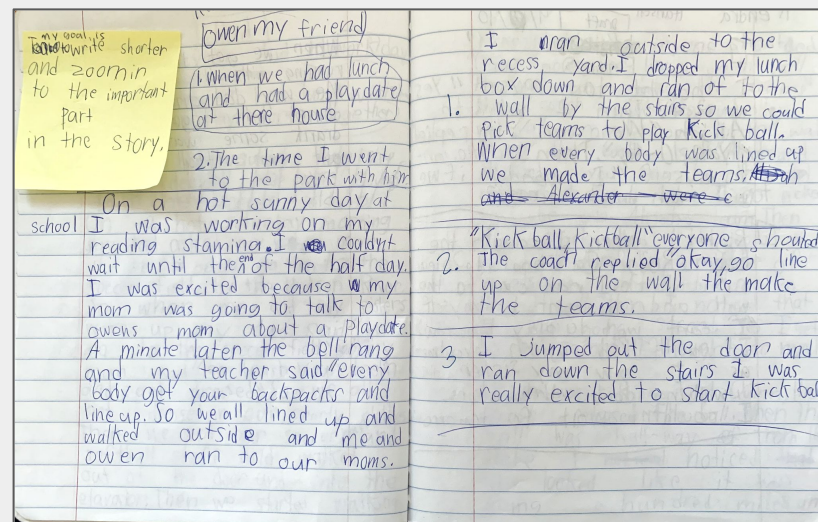 my goal is
to write shorter
and zoomin
to the important
part
in the story.
owen my friend
1. when we had lunch
and had a playdate
at there house
2. The time I went
to the park with him
On a hot sunny day at
school I was working on my
reading stamina. I couldn't
wait until the end of the half day.
I was excited because my
mom was going to talk to
owens mom about a playdate.
A minute later the bell rang
and my teacher said "every
body get your backpacks and
line up. So we all lined up and
walked outside and me and
owen ran to our moms.
I ran outside to the
recess yard. I dropped my lunch
box down and ran of to the
1. wall by the stairs so we could
pick teams to play Kick ball.
When every body was lined up
we made the teams.
and Alexander were c
"Kick ball, kickball" everyone shouted
2. The coach replied "okay, go line
up on the wall the make
the teams.
3 I jumped out the door and
ran down the stairs I was
really excited to start kick bal